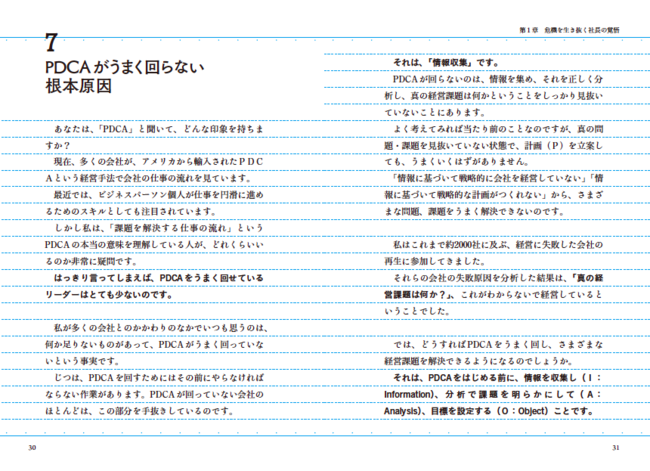 第1章　危機を生き抜く社長の覚悟
7
PDCAがうまく回らない
根本原因
あなたは、「PDCA」と聞いて、どんな印象を持ちま
すか？
現在、多くの会社が、アメリカから輸入されたＰＤＣ
Ａという経営手法で会社の仕事の流れを見ています。
最近では、ビジネスパーソン個人が仕事を円滑に進め
るためのスキルとしても注目されています。
しかし私は、「課題を解決する仕事の流れ」という
PDCAの本当の意味を理解している人が、どれくらいい
るのか非常に疑問です。
はっきり言ってしまえば、PDCAをうまく回せている
リーダーはとても少ないのです。
私が多くの会社とのかかわりのなかでいつも思うのは、
何か足りないものがあって、PDCAがうまく回っていな
いという事実です。
じつは、PDCAを回すためにはその前にやらなければ
ならない作業があります。PDCAが回っていない会社の
ほとんどは、この部分を手抜きしているのです。
30
それは、「情報収集」です。
PDCAが回らないのは、情報を集め、それを正しく分
析し、真の経営課題は何かということをしっかり見抜い
ていないことにあります。
よく考えてみれば当たり前のことなのですが、真の問
題・課題を見抜いていない状態で、計画（P）を立案し
ても、うまくいくはずがありません。
「情報に基づいて戦略的に会社を経営していない」「情
報に基づいて戦略的な計画がつくれない」から、さまざ
まな問題、課題をうまく解決できないのです。
私はこれまで約2000社に及ぶ、経営に失敗した会社の
再生に参加してきました。
それらの会社の失敗原因を分析した結果は、「真の経
営課題は何か？」、これがわからないで経営していると
いうことでした。
では、どうすればPDCAをうまく回し、さまざまな
経営課題を解決できるようになるのでしょうか。
それは、PDCAをはじめる前に、情報を収集し（I：
Information）、分析で課題を明らかにして（A：
Analysis）、目標を設定する（O：Object）ことです。
31